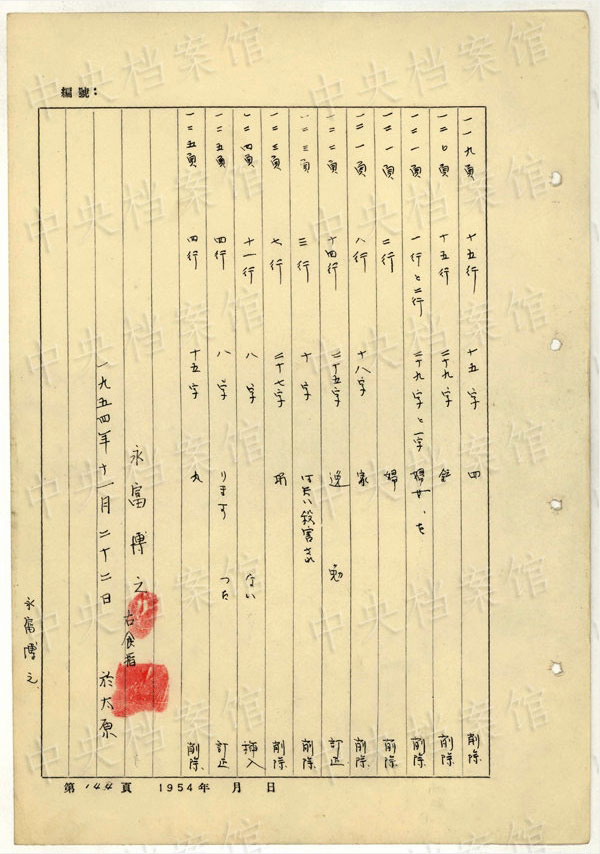 編號：
一一九頁 十五行 十五字 四 削除
一二〇頁 十五行 二十九字 削除
一二一頁 一行と二行 二十九字と一字 婦女、を 削除
一二一頁 二行 婦 削除
一二一頁 八行 十八字 家 削除
一二二頁 十四行 二十五字 逸 勉 訂正
一二三頁 三行 十字 削除
一二三頁 七行 二十七字 削除
一二四頁 十一行 八字 ない 挿入
一二五頁 四行 八字 ります つた 訂正
一二五頁 四行 十五字 九 削除
永富博之
右食指
一九五四年十一月二十二日 於太原
永富博之
第144頁 1954年 月 日
中央档案馆